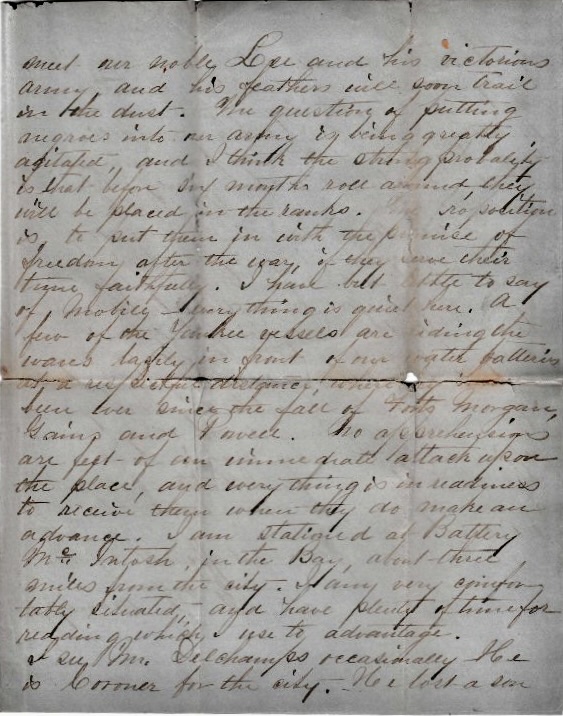 meet our noble Lee and his victorious
army, and his feathers will soon trail
in the dust. The question of putting
negroes into our army is being greatly
agitated, and I think the strong probality
is that before six months roll around, they
will be placed in the ranks. The roposition
is to put them in with the promise of
freedom after the war, if they serve their
time faithfully. I have but little to say
of Mobile, everything is quiet here. A
few of the Yankee vessels are riding the
waves lazily in front of our water batteries
at a respectful distance, where
been ever since the fall of Forts Morgan,
Gains and Powell. No apprehensions
are felt of an immediate attack upon
the place, and everything is in readiness
to receive them when they do make an
advance. I am stationed at Battery
Mc Intosh, in the Bay, about three
miles from the city. I am very comfor
tably situated, and have plenty of time for
reading which I use to advantage.
I see Mr. Delchamps occasionally He
is Coroner for the city. He lost a son